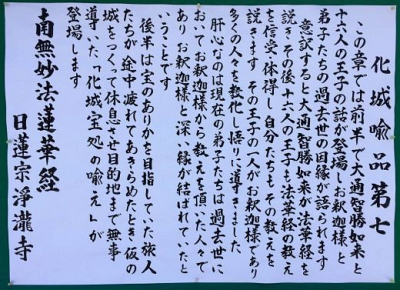 化城喩品第七
この章では前半で大通智勝如来と
十六人の王子の話が登場しお釈迦様と
弟子たちの過去世の因縁が語られます
意訳すると大通智勝如来が法華経を
説きその後十六人の王子も法華経の教え
を信受体得し自分たちもその教えを
説きます その王子の一人がお釈迦様であり
多くの人々を教化し悟りに導きました
肝心なのは現在の弟子たちは過去世に
おいてお釈迦様から教えを頂いた人々で
ありお釈迦様と深い縁が結ばれていたと
いうことです
後半は宝のありかを目指していた旅人
たちが途中疲れてあきらめたとき仮の
城をつくって休息させ目的地まで無事
導いた「化城宝処の喩え」が
登場します
南無妙法蓮華経
日蓮宗浄瀧寺